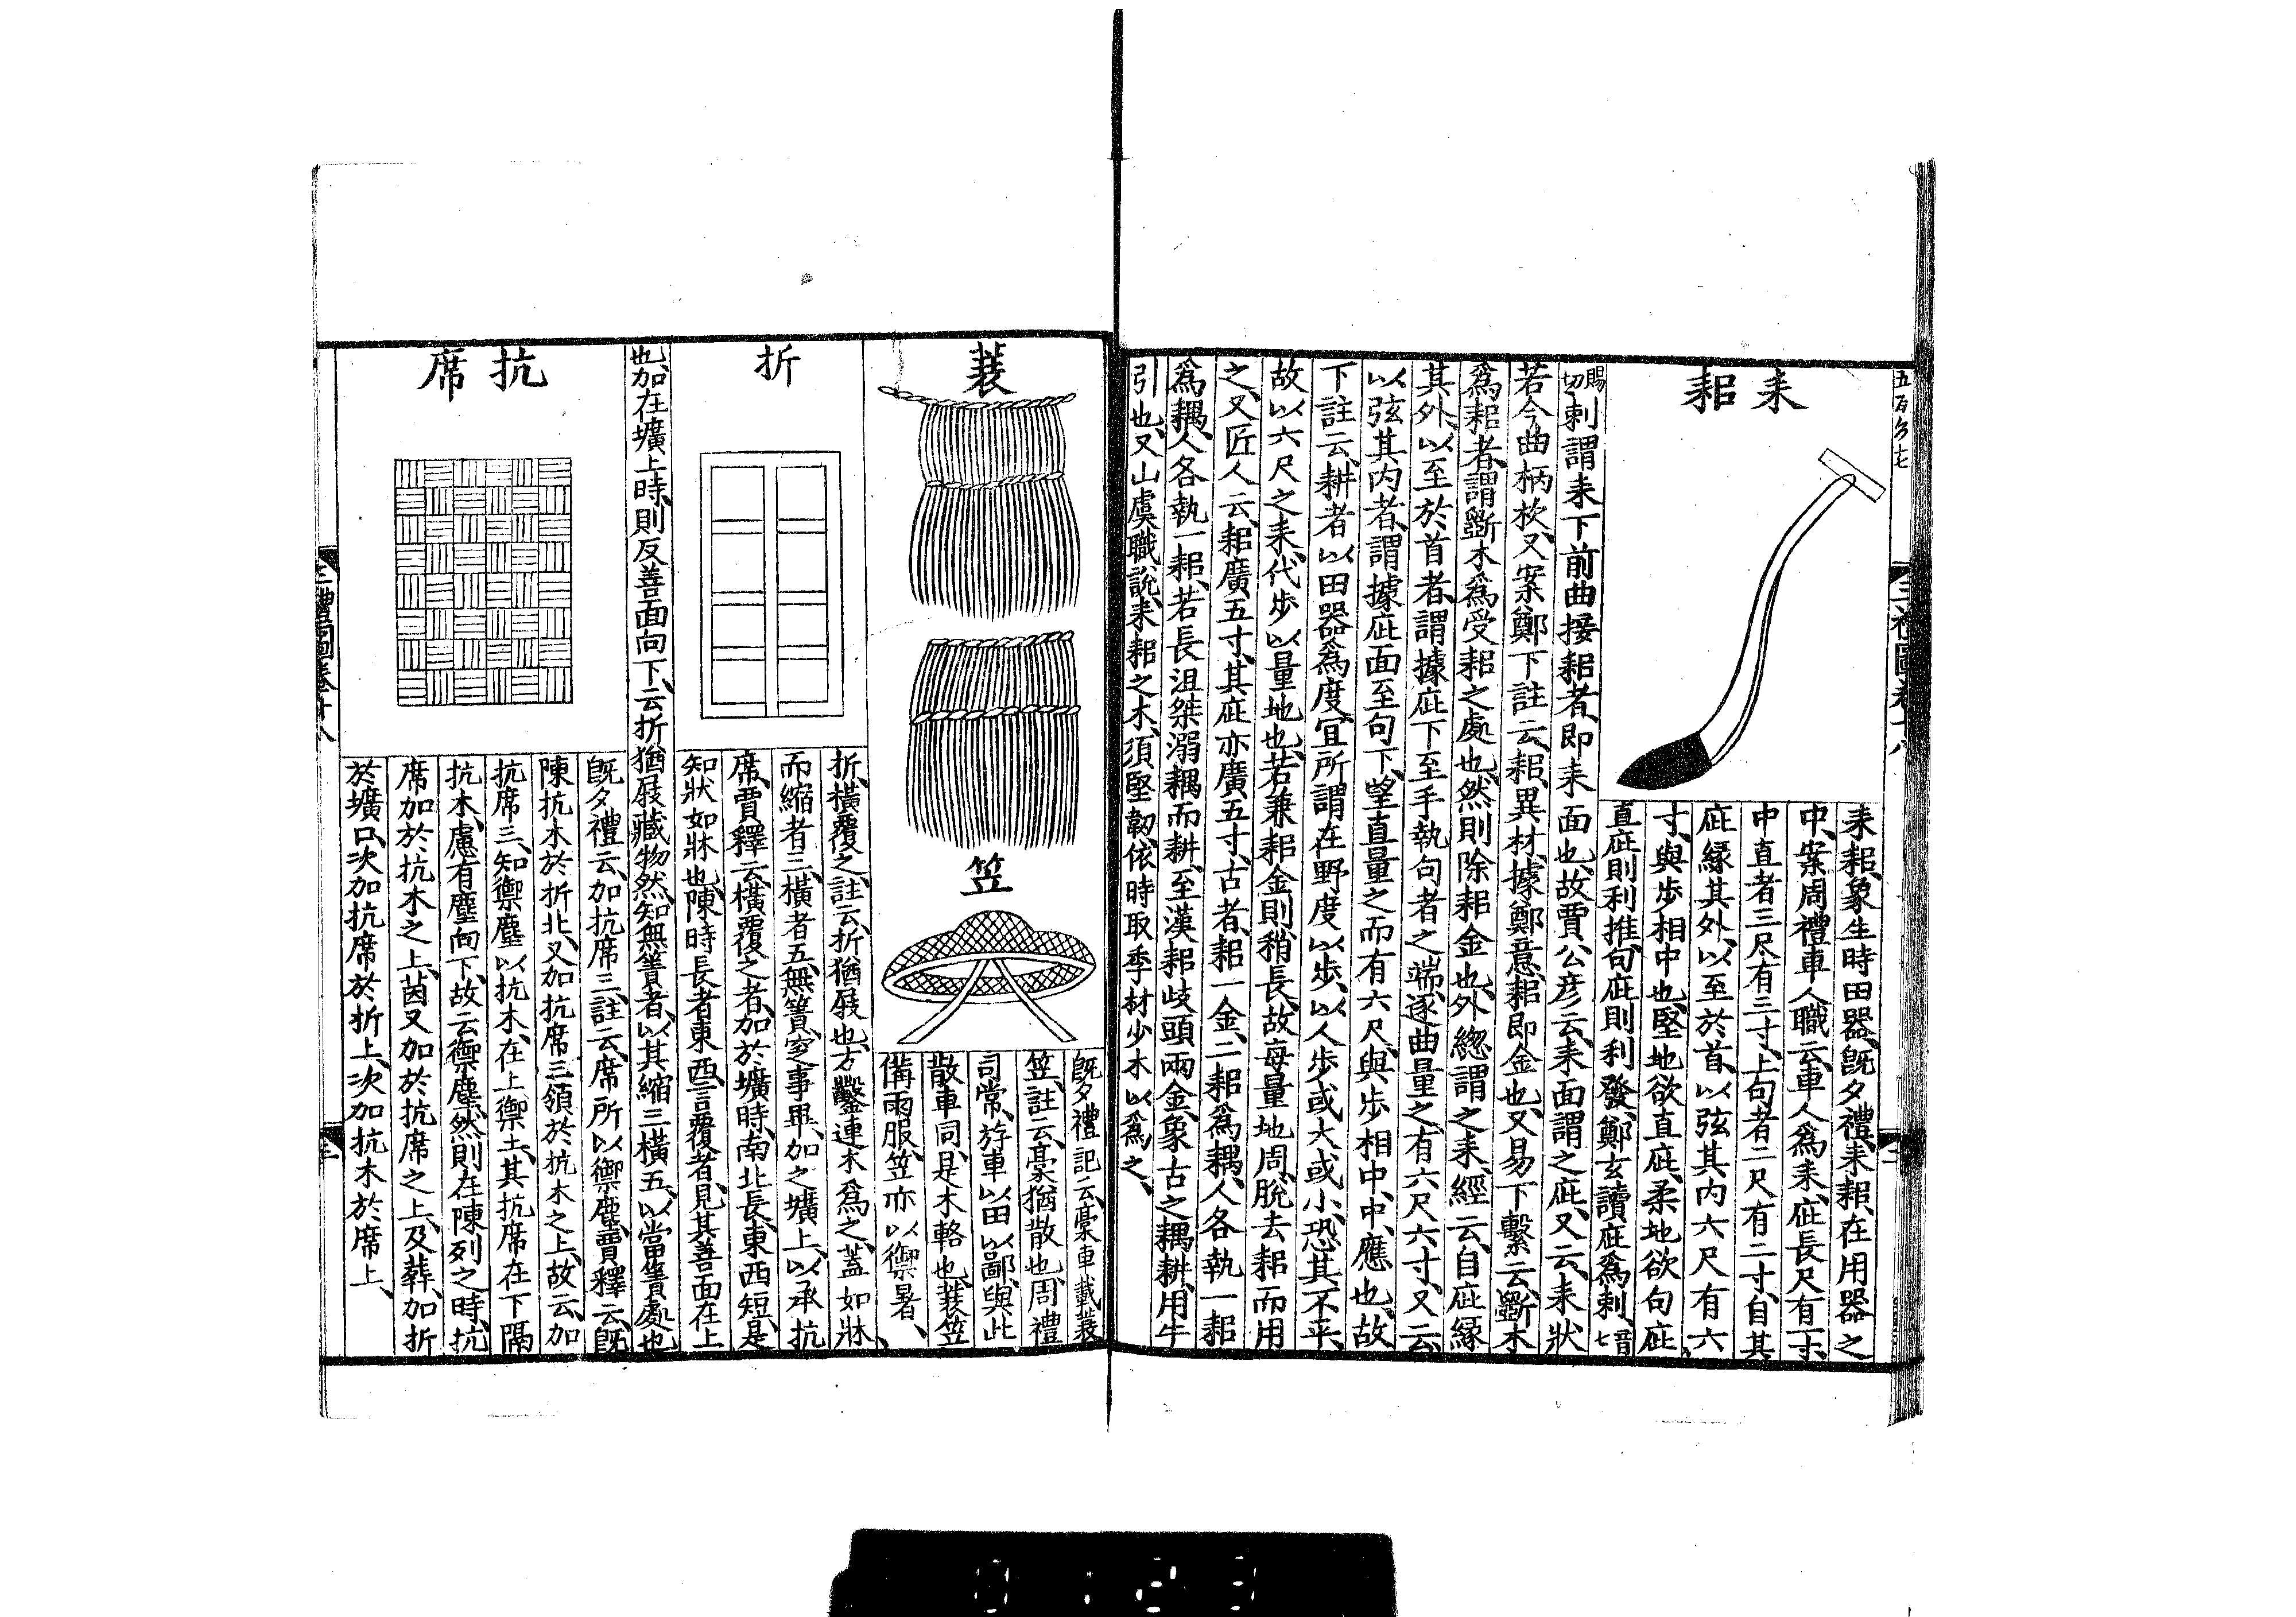 耒耜
耒耜、象生時田器、旣夕禮、耒耜、在用器之
中、案周禮車人職云、車人爲耒、庛長尺有一寸、
中直者三尺有三寸、上句者二尺有二寸、自其
庛緣其外、以至於首、以弦其内六尺有六
寸、與步相中也、堅地欲直庛、柔地欲句庛、
直庛則利推、句庛則利發、鄭玄讀庛爲刺、音七
賜切、刺謂耒下前曲接耜者、即耒面也、故賈公彦云、耒面謂之庛、又云、耒狀
若今曲柄杴、又案鄭下註云、耜、異材、據鄭意、耜即金也、又易下繫云、斲木
爲耜者、謂斲木爲受耜之處也、然則除耜金也、外緫謂之耒、經云、自庛緣
其外、以至於首者、謂據庛下至手執句者之端、逐曲量之、有六尺六寸、又云、
以弦其内者、謂據庛面至句下、望直量之而有六尺、與步相中、中、應也、故
下註云、耕者以田器爲度宜、所謂在野度以步、以人步或大或小、恐其不平、
故以六尺之耒、代步以量地也、若兼耜金則稍長、故每量地周、脫去耜而用
之、又匠人云、耜廣五寸、其庛亦廣五寸、古者、耜一金、二耜爲耦、人各執一耜
爲耦、人各執一耜、若長沮桀溺耦而耕、至漢耜歧頭兩金、象古之耦耕、用牛
引也、又山虞職說、耒耜之木、須堅韌、依時取季材少木以爲之、
蓑
笠
旣夕禮記云、稾車載蓑
笠、註云、稾猶散也、周禮
司常、斿車以田以鄙、與此
散車同、是木輅也、蓑笠
備雨服、笠亦以禦暑、
折
折、橫覆之、註云、折猶庪也、方鑿連木爲之、蓋如牀
而縮者三、橫者五、無簀、窆事畢、加之壙上、以承抗
席、賈釋云、橫覆之者、加於壙時、南北長、東西短、是
知狀如牀也、陳時長者東西、言覆者、見其善面在上
也、加在壙上時、則反善面向下、云折猶庪藏物然、知無簀者、以其縮三橫五、以當簀處也
抗席
旣夕禮云、加抗席三、註云、席所以禦塵、賈釋云、旣
陳抗木於折北、又加抗席三領於抗木之上、故云、加
抗席三、知禦塵以抗木、在上禦土、其抗席在下隔
抗木、慮有塵向下、故云禦塵、然則在陳列之時、抗
席加於抗木之上、茵又加於抗席之上、及葬、加折
於壙口、次加抗席於折上、次加抗木於席上、
三禮圖卷十八